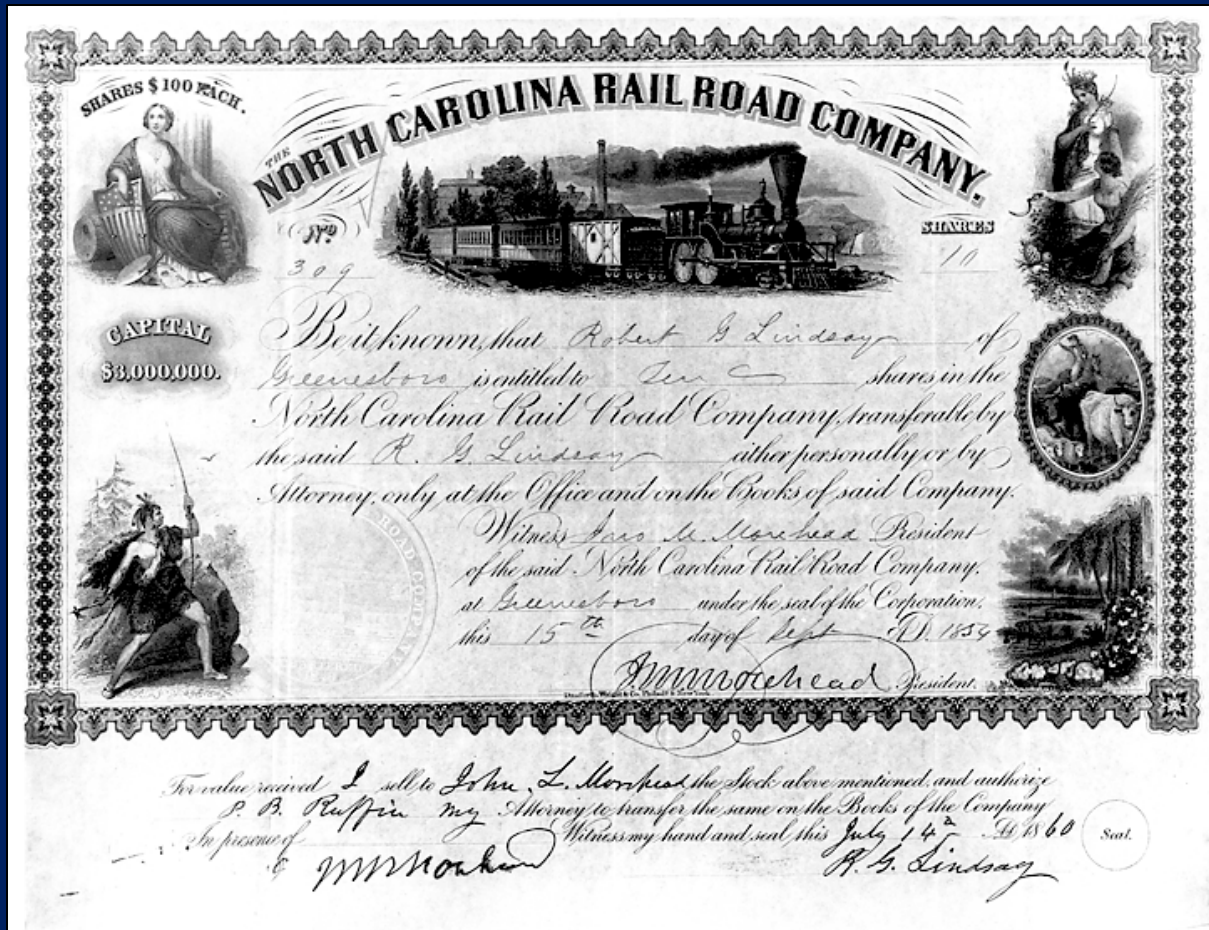 SHARES $100 EACH.
THE
NORTH CAROLINA RAIL ROAD COMPANY.
No
309
SHARES
10
CAPITAL
$3,000,000.
Be it known, that Robert G Lindsay of
Greenesboro is entitled to Ten shares in the
North Carolina Rail Road Company, transferable by
the said R. G. Lindsay either personally or by
Attorney, only at the Office and on the Books of said Company.
Witness Jno M. Morehead President
of the said North Carolina Rail Road Company.
at Greenesboro under the seal of the Corporation,
this 15th day of Sept A.D. 1854
J M Morehead President.
Danforth, Wright & Co. Philada & New York
ROAD COMPANY
For value received I sell to John L. Morehead the Stock above mentioned, and authorize
P. B. Ruffin my Attorney to transfer the same on the Books of the Company
In presence of Witness my hand and seal this July 14 AD 1860
Seal.
R. G. Lindsay